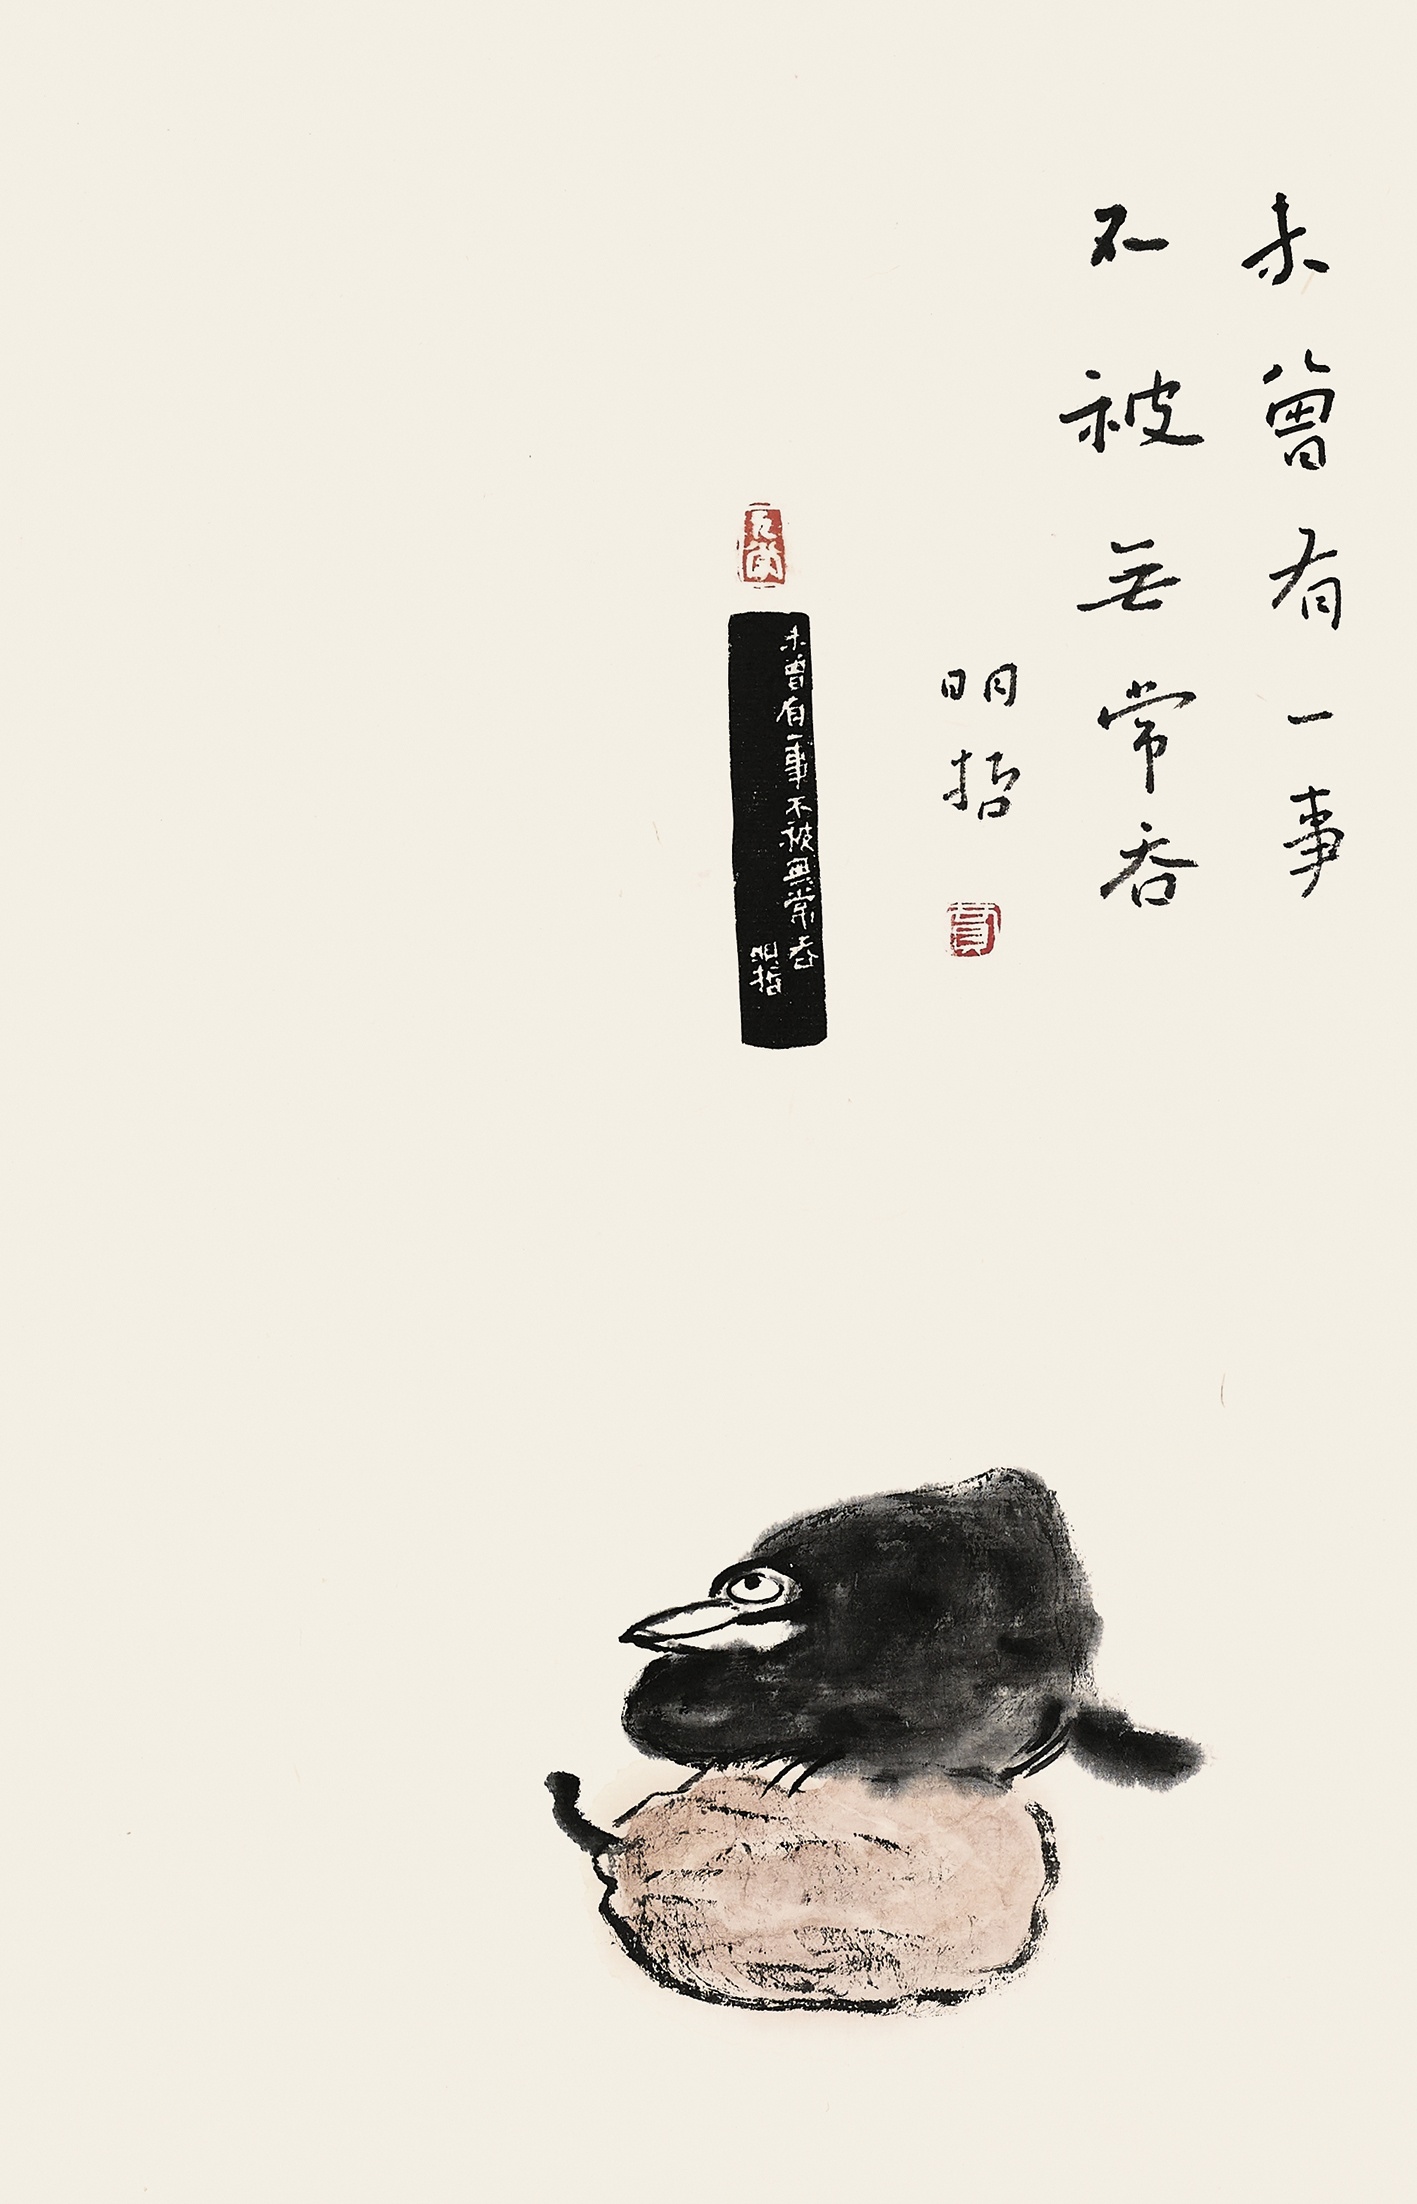 未曾有一事
不被无常吞
明哲
未曾有一事不被無常吞
明哲